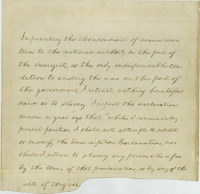 In presenting the abandonment of armed resis-
tance to the national authority on the part of
the insurgents, as the only indispensable con-
dition to ending the war on the part of
the government, I retract nothing heretofore
said as to slavery. I repeat the declaration
made a year ago that "while I remain in my
present position I shall not attempt to retract
or modify the Emancipation Proclamation, nor
shall I return to slavery any person who is free
by the terms of the proclamation, or by any of the
acts of Congress